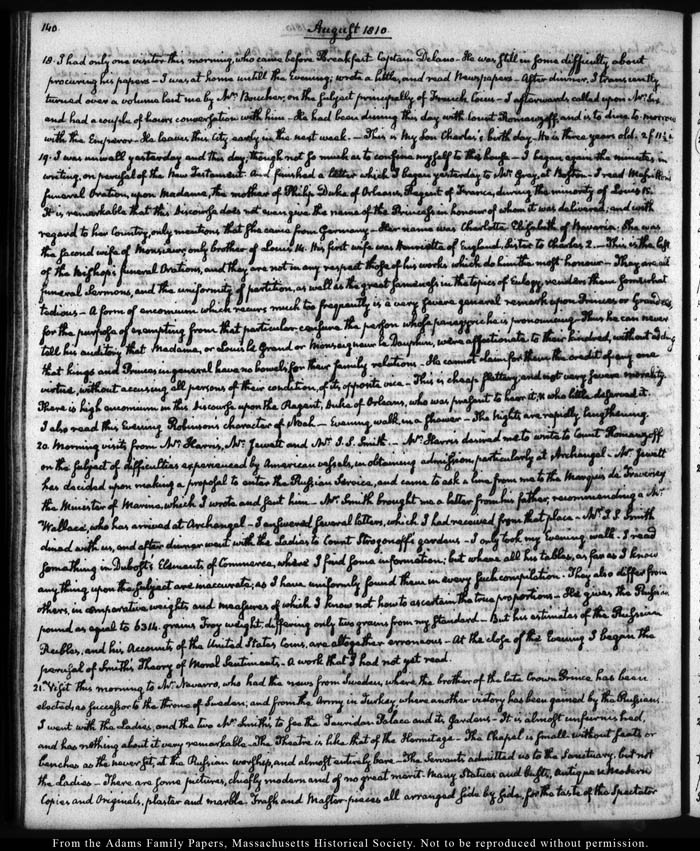 140
August 1810
18. I had only one visitor this morning, who came before Breakfast Captain Delano - He was still in some difficulty about
procuring his papers - I was at home untill the Evening; wrote a little, and read Newspapers - After dinner, I transiently
turned over a volume lent me by Mr. Boucher, on the subject principally of French Coins - I afterwards called upon Mr.
and had a couple of hours conversation with him - He had been during this day with Count Romanzoff, and is to dine to-morrow
with the Emperor - He leaves this City early in the next week. - This is my Son Charles's birth day - He is three years old:
19. I was unwell yesterday and this day; though not so much as to confine myself to the house - I began again the minutes in
writing, on perusal of the New Testament. And finished a letter which I began yesterday to Mr. Gray, at Boston - I read
funeral Oration, upon Madame, the mother of Philip Duke of Orleans, Regent of France, during the minority of Louis 15.
It is remarkable that this Discourse does not even give the name of the Princess in honour of whom it was delivered; and with
regard to her Country, only mentions that she came from Germany - Her name was Charlotte Elizabeth of Bavaria: She was
the second wife of Monsieur, only brother of Louis 14. His first wife was Henrietta of England, sister to Charles 2. - This is the last
of the Bishop's funeral Orations, and they are not in any respect those of his works which do him the most honour - They are all
funeral Sermons, and the uniformity of partition, as well as the great sameness in the topics of Eulogy renders them somewhat
tedious - A form of encomium which recurs much too frequently is a very severe general remark upon Princes or Grandees,
for the purpose of exempting from that particular censure the person whose panegyric he is pronouncing - Thus he can never
tell his auditory that Madame, or Louis le Grand or Monseigneur le Dauphin, were affectionate to their kindred, without adding
that kings and Princes in general have no bowels for their family relations. He cannot claim for them the credit of any one
virtue, without accusing all persons of their condition, of its opposite vice - This is cheap flattery and not very severe morality.
There is high encomium in this discourse upon the Regent, Duke of Orleans, who was present to hear it, & who little deserved it.
I also read this Evening Robinson's character of Noah - Evening walk, in a shower - The Nights are rapidly lengthening.
20. Morning visits from Mr. Harris, Mr. Jewett and Mr. J. S. Smith. - Mr. Harris desired me to write to Count Romanzoff
on the subject of difficulties experienced by American vessels, in obtaining admission, particularly at Archangel - Mr. Jewett
has decided upon making a proposal to enter the Russian Service, and came to ask a line from me to the Marquis de Traversey
the Minister of Marine, which I wrote and sent him - Mr. Smith brought me a letter from his father, recommending a Mr.
Wallace, who has arrived at Archangel - I answered several letters, which I had received from that place - Mr. J. S. Smith
dined with us, and after dinner went with the Ladies to Count Strogonoff's gardens - I only took my evening walk. I read
something in Dubost's Elements of Commerce, where I find some information; but where all his tables, as far as I know
any thing upon the subject are inaccurate; as I have uniformly found them in every such compilation - They also differ from
others, in comparative weights and measures of which I know not how to ascertain the true proportions - He gives the Russian
pound as equal to 6314. grains Troy weight, differing only two grains from my standard - But his estimates of the Russian
Roubles, and his Accounts of the United States Coins, are altogether erroneous - At the close of the Evening I began the
perusal of Smith's Theory of Moral Sentiments - A work that I had not yet read.
21. Visit this morning to Mr. Navarro, who had the news from Sweden, where the brother of the late Crown Prince, has been
elected as successor to the throne of Sweden; and from the Army in Turkey where another victory has been gained by the Russians
I went with the Ladies, and the two Mr. Smiths to see the Tauridan Palace and its Gardens - It is almost unfurnished,
and has nothing about it very remarkable - The Theatre is like that of the Hermitage - The Chapel is small without seats or
benches as they never sit, at the Russian worship, and almost entirely bare - The Servants admitted us to the Sanctuary. but not
the Ladies - There are some pictures, chiefly modern and of no great merit. Many Statues and busts, Antique & Modern
Copies and Originals, plaster and marble. Trash and Master-pieces all arranged side by side, for the taste of the Spectator
From the Adams Family Papers, Massachusetts Historical Society. Not to be reproduced without permission.